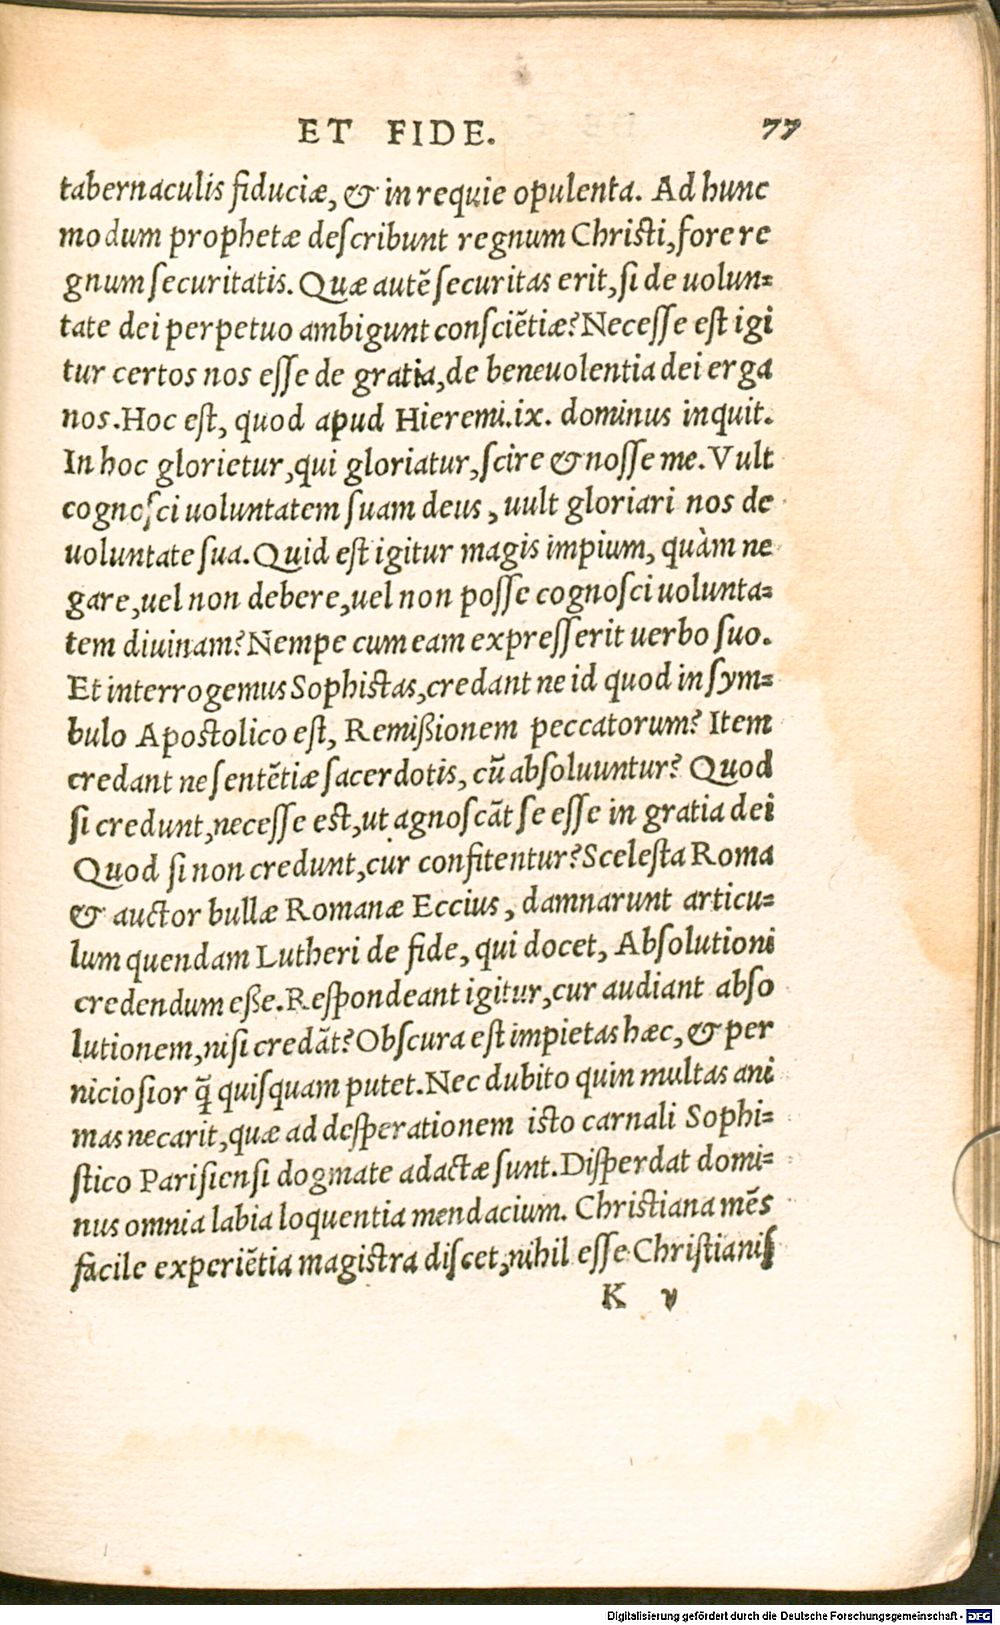 ET FIDE. 77
tabernaculis fiduciæ, & in requie opulenta. Ad hunc
modum prophetæ deſcribunt regnum Chriſti, fore re
gnum ſecuritatis. Quæ autē ſecuritas erit, ſi de uolun⸗
tate dei perpetuo ambigunt conſciētiæ? Neceſſe eſt igi
tur certos nos eſſe de gratia, de beneuolentia dei erga
nos. Hoc eſt, quod apud Hieremi. ix. dominus inquit.
In hoc glorietur, qui gloriatur, ſcire & noſſe me. Vult
cognoſci uoluntatem ſuam deus, uult gloriari nos de
uoluntate ſua. Quid eſt igitur magis impium, quàm ne
gare, uel non debere, uel non poſſe cognoſci uolunta⸗
tem diuinam? Nempe cum eam expreſſerit uerbo ſuo.
Et interrogemus Sophiſtas, credant ne id quod in ſym⸗
bulo Apoſtolico eſt, Remißionem peccatorum? Item
credant ne ſentētiæ ſacerdotis, cū abſoluuntur? Quod
ſi credunt, neceſſe eſt, ut agnoſcāt ſe eſſe in gratia dei
Quod ſi non credunt, cur confitentur? Sceleſta Roma
& auctor bullæ Romanæ Eccius, damnarunt articu⸗
lum quendam Lutheri de fide, qui docet, Abſolutioni
credendum eße. Reſpondeant igitur, cur audiant abſo
lutionem, niſi credāt? Obſcura eſt impietas hæc, & per
nicioſior q̄ quiſquam putet. Nec dubito quin multas ani
mas necarit, quæ ad deſperationem iſto carnali Sophi⸗
ſtico Pariſienſi dogmate adactæ ſunt. Diſperdat domi⸗
nus omnia labia loquentia mendacium. Chriſtiana mēs
facile experiētia magiſtra diſcet, nihil eſſe Chriſtianiſ
K v
Digitalisierung gefördert durch die Deutsche Forschungsgemeinschaft - DFG